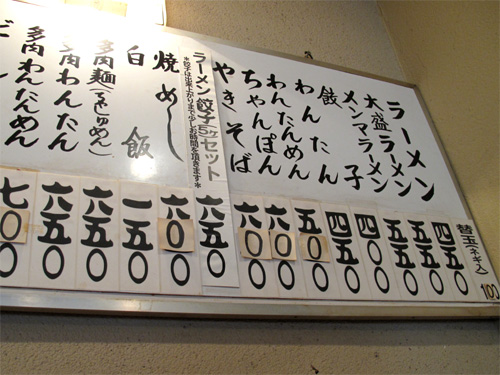 替玉(ネギ入)
100
ラーメン
四五〇
大盛ラーメン
五五〇
メンマラーメン
五五〇
餃子
四〇〇
わんたん
四五〇
わんたんめん
五〇〇
ちゃんぽん
六〇〇
やきそば
六〇〇
ラーメン餃子(5ヶ)セット
*餃子は出来上がりまで少しお時間を頂きます*
六五〇
焼めし
六〇〇
白飯
一五〇
多肉麺(ちゃしゅめん)
六五〇
多肉わんたん
六五〇
多肉わんたんめん
七〇〇